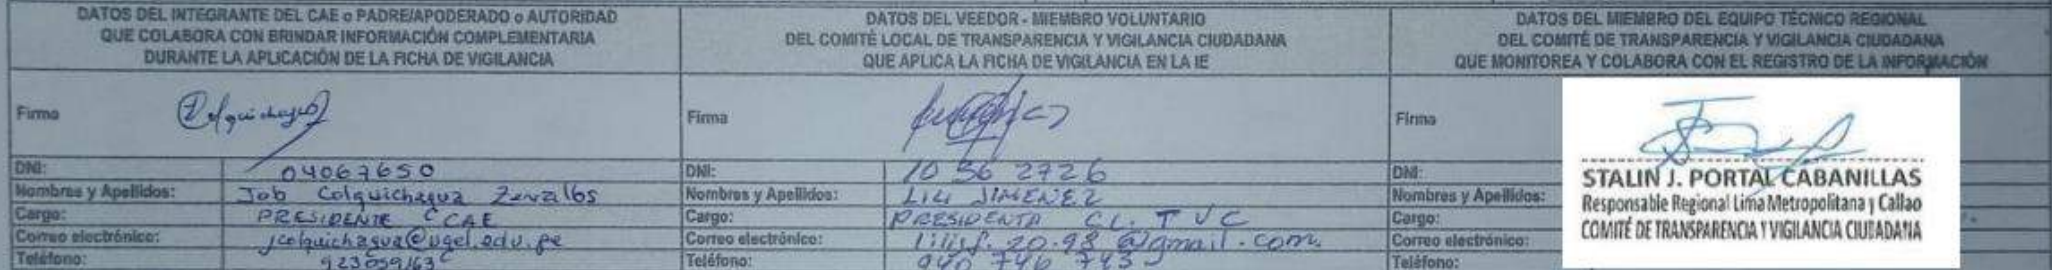 DATOS DEL INTEGRANTE DEL CAE o PADRE/APODERADO o AUTORIDAD
QUE COLABORA CON BRINDAR INFORMACIÓN COMPLEMENTARIA
DURANTE LA APLICACIÓN DE LA FICHA DE VIGILANCIA
Firma
DNI: 04067650
Nombres y Apellidos: Job Colquichagua Zevallos
Cargo: PRESIDENTE CCAE
Correo electrónico: jcolquichagua@ugel.edu.pe
Teléfono: 923059163
DATOS DEL VEEDOR - MIEMBRO VOLUNTARIO
DEL COMITÉ LOCAL DE TRANSPARENCIA Y VIGILANCIA CIUDADANA
QUE APLICA LA FICHA DE VIGILANCIA EN LA IE
Firma
DNI: 10562726
Nombres y Apellidos: LILI JIMENEZ
Cargo: PRESIDENTA CL. TVC
Correo electrónico: lilisf.20.98@gmail.com.
Teléfono: 940 746 743
DATOS DEL MIEMBRO DEL EQUIPO TÉCNICO REGIONAL
DEL COMITÉ DE TRANSPARENCIA Y VIGILANCIA CIUDADANA
QUE MONITOREA Y COLABORA CON EL REGISTRO DE LA INFORMACIÓN
Firma
DNI:
Nombres y Apellidos:
Cargo:
Correo electrónico:
Teléfono:
STALIN J. PORTAL CABANILLAS
Responsable Regional Lima Metropolitana y Callao
COMITÉ DE TRANSPARENCIA Y VIGILANCIA CIUDADANA